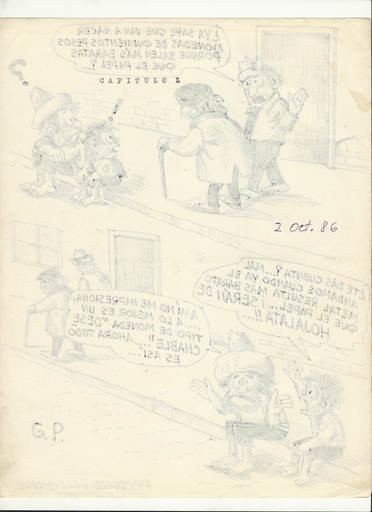 ¿YA SABE QUE VAN A HACER
MONEDAS DE QUINIENTOS PESOS
PORQUE SALEN MAS BARATAS
QUE EL PAPEL?
CAPITULO I
?
!
2 Oct. 86
¿TE DAS CUENTA?... MAL
ANDAMOS CUANDO YA EL
METAL RESULTA MAS BARATO
QUE EL PAPEL... ¡SERAN DE
HOJALATA!!!
A MI NO ME IMPRESIONA
...A LO MEJOR ES UN
TIPO DE MONEDA "DESE
CHABLE"... ¡AHORA TODO
ES ASI...